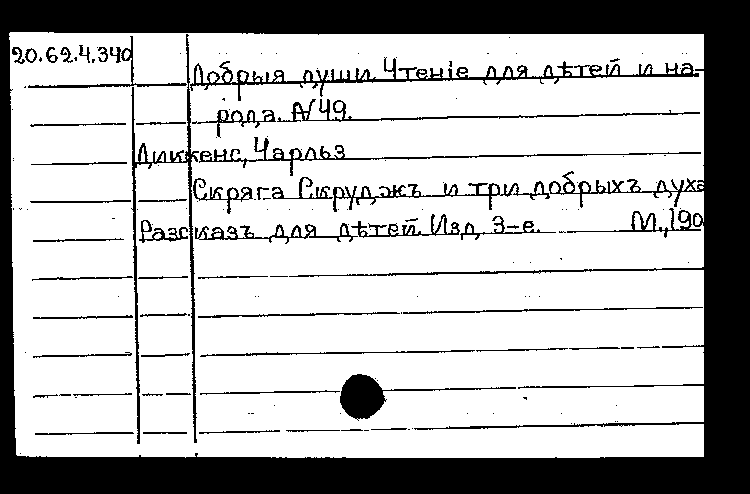 20.62.4.340
Добрыя души. Чтеніе для дѣтей и на-
рода. №49.
Диккенс, Чарльз
Скряга Скруджъ и три добрыхъ духа
Разсказъ для дѣтей. Изд. 3-е. М., 190